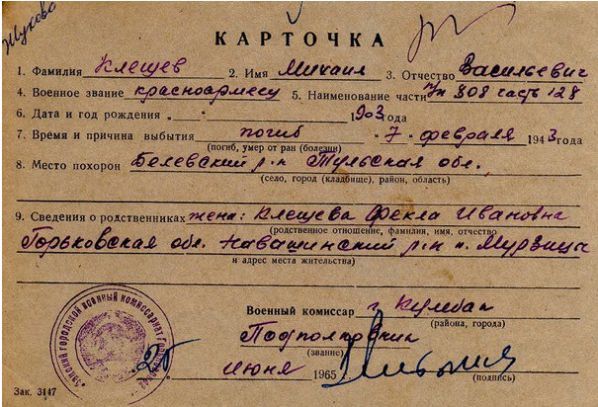 Жуково
КАРТОЧКА
1. Фамилия Клещев 2. Имя Михаил 3. Отчество Васильевич
4. Военное звание красноармеец 5. Наименование части п/п 808 часть 128
6. Дата и год рождения 1903 года
7. Время и причина выбытия погиб "7" февраля 1943 года
(погиб, умер от ран (болезни)
8. Место похорон Белевский р-н Тульская обл.
(село, город (кладбище), район, область)
9. Сведения о родственниках жена: Клещева Фекла Ивановна
(родственное отношение, фамилия, имя, отчество
Горьковская обл. Навашинский р-н п. Мурзица
и адрес места жительства)
Военный комиссар г. Кулебак
(района, города)
Подполковник
(звание)
25 июня 1965
(подпись)
городской военный комиссариат
Зак. 3147